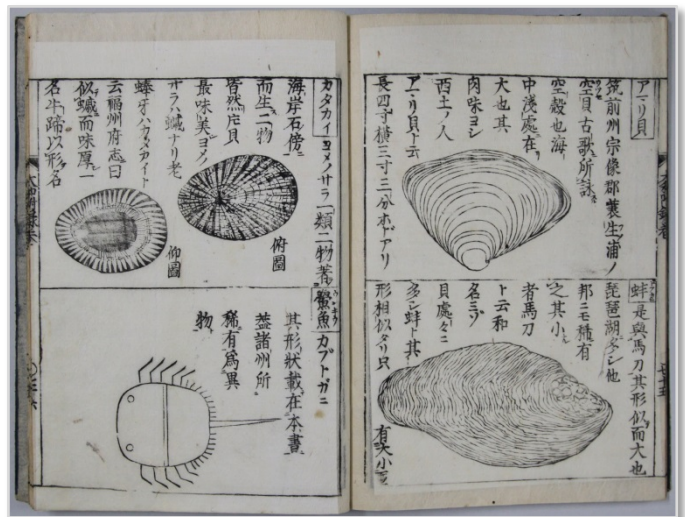 アサリ貝
筑前州宗像郡蓑生浦ノ
空貝古歌所詠
空殻也海
中浅處在
大也其
肉味ヨシ
西土ノ人
貝ト云
長四寸横三寸三分ホドアリ
蚌是與馬刀其形似而大也
琵琶湖多シ他
邦ニモ稀有
之其小
者馬刀
ト云和
名
貝處々ニ
多シ蚌ト其
形相似タリ只
有大小
カタカイ ヨメノサラ 一類二物著
海岸石傍
而生二物
皆然庀貝
最味美ヨメノ
サラハ蠘ナリ老
蜯牙ハウノアイト
云福州府志曰
似蠘而味厚一
名牛蹄以形名
俯圖
仰圖
鱟魚 カブトガニ
其形状載在本書
蓋諸州所
稀有為異
物